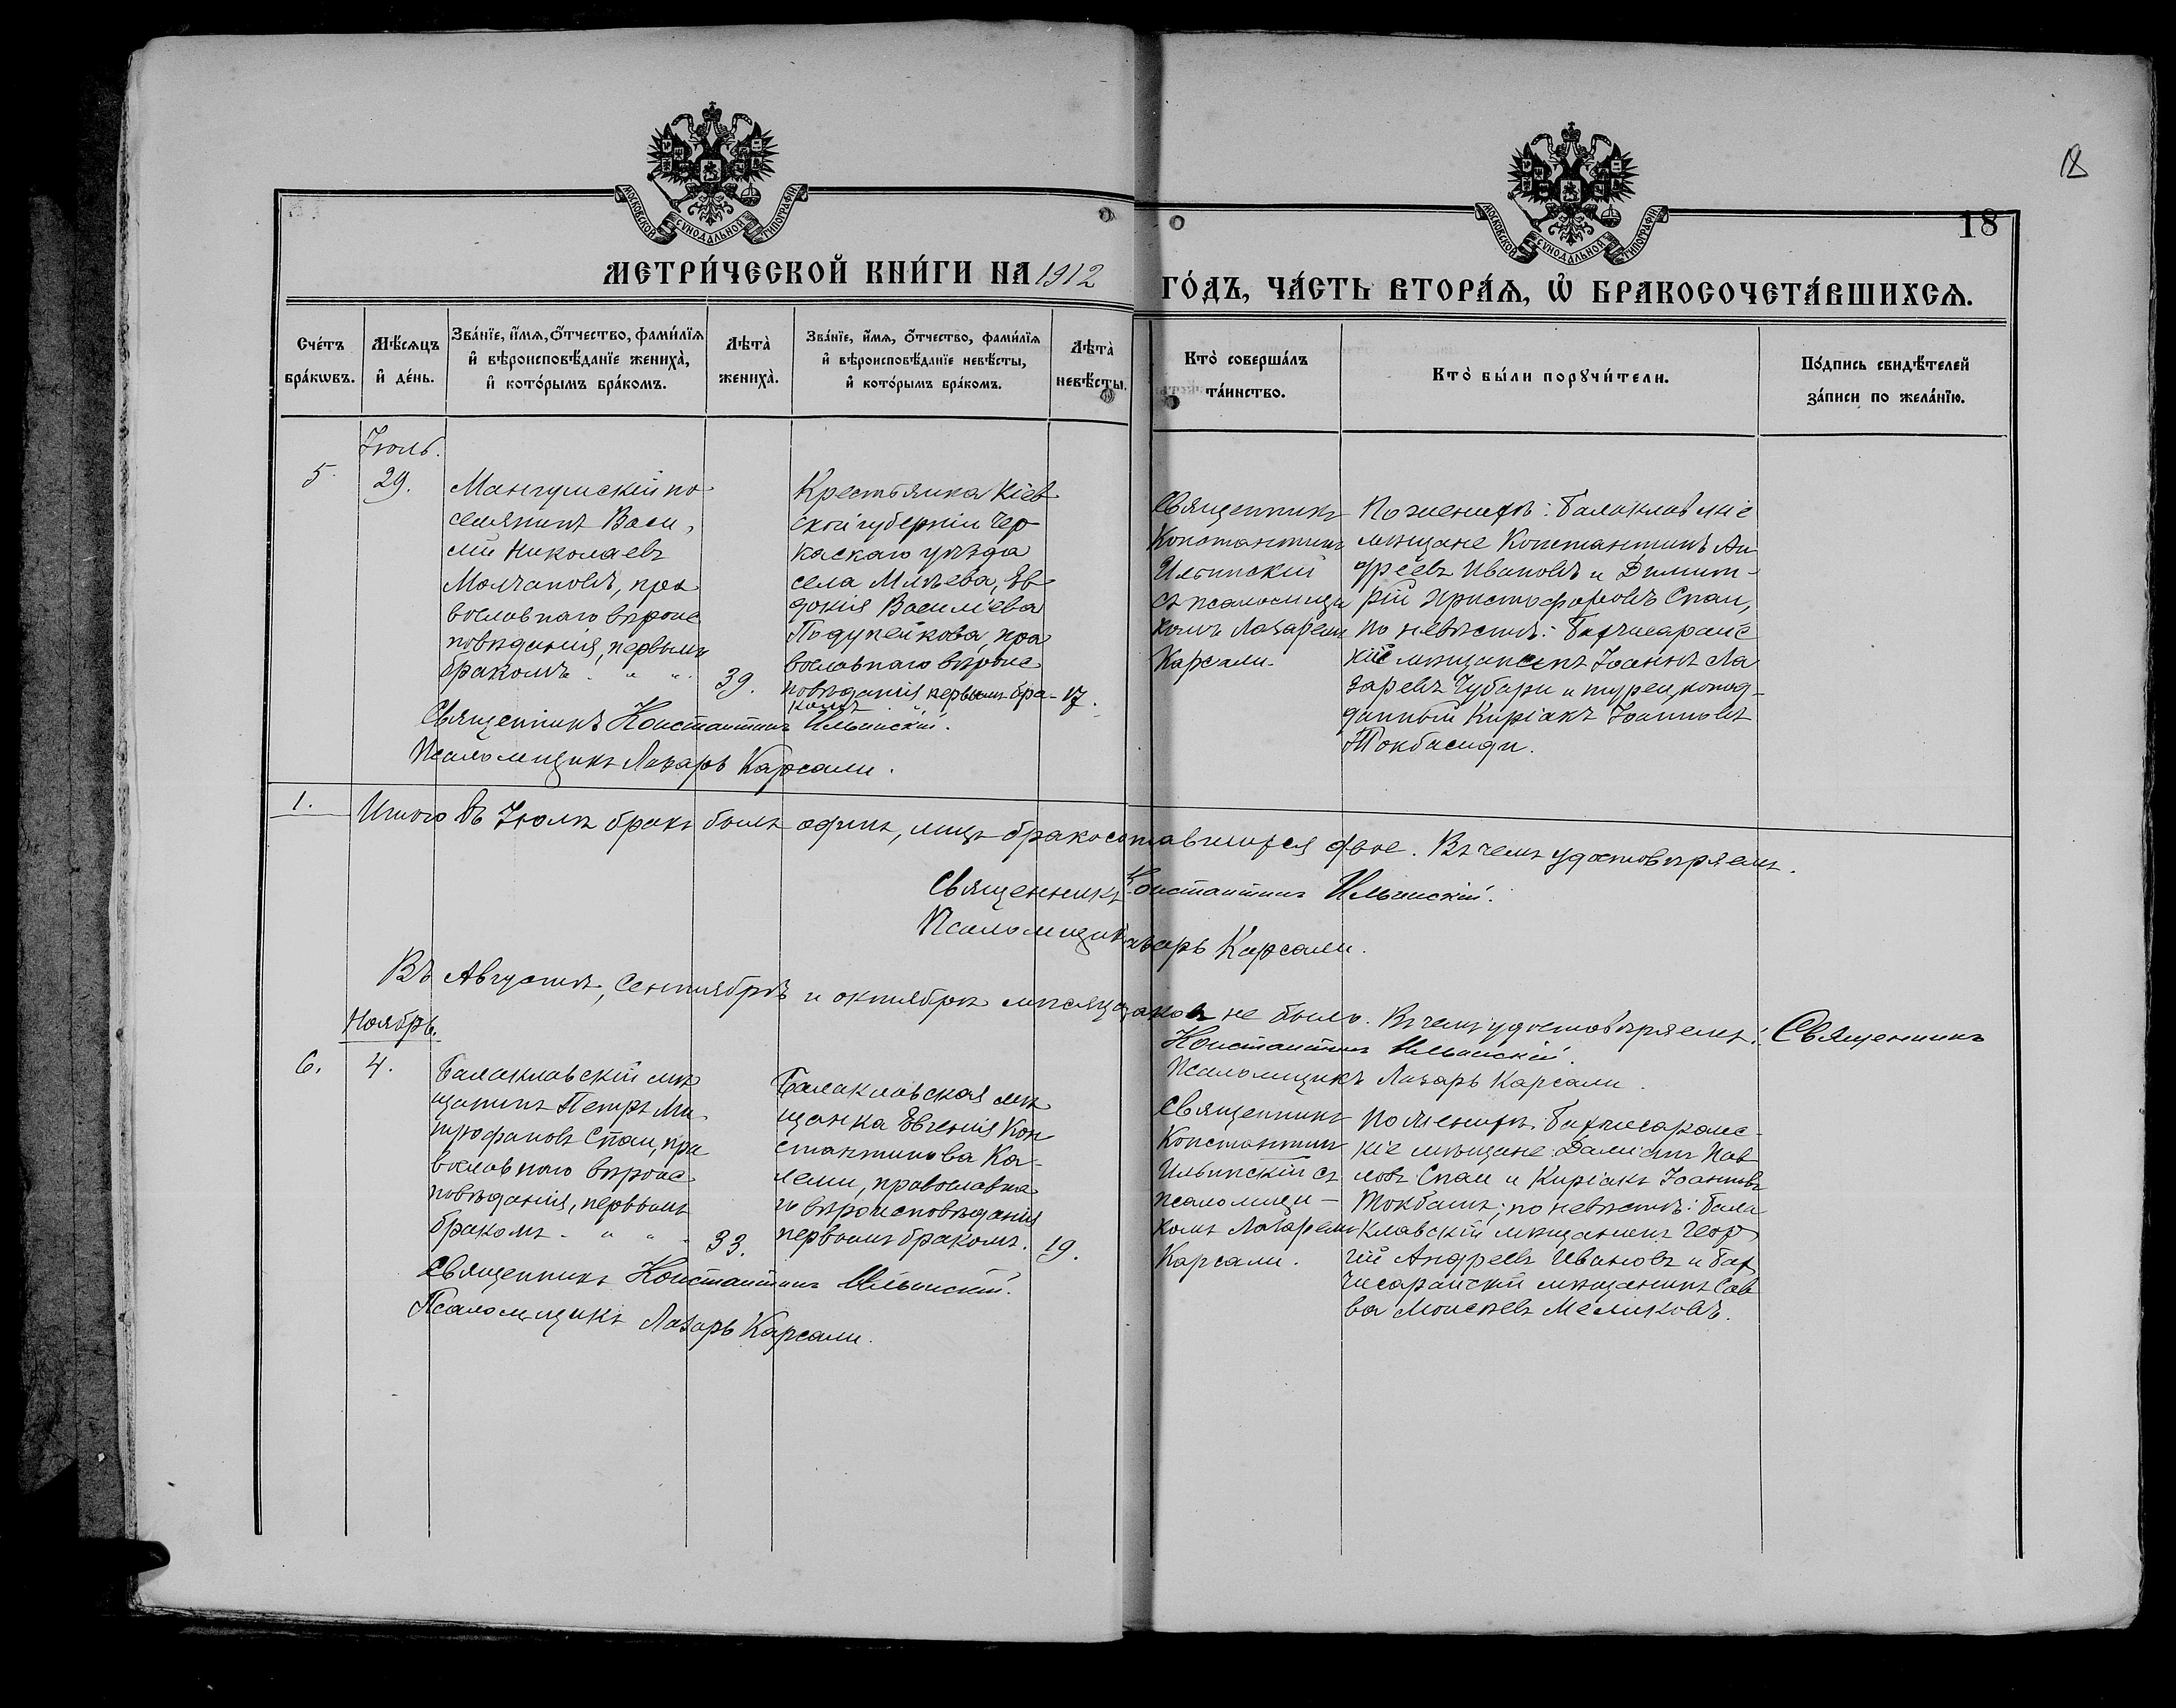 18
МОСКОВСКОЙ СУНОДАЛЬНОЙ ТИПОГРАФІИ
МОСКОВСКОЙ СУНОДАЛЬНОЙ ТИПОГРАФІИ
18
МЕТРИ́ЧЕСКОЙ КНИ́ГИ НА 1912
ГО́ДЪ, ЧА́СТЬ ВТОРА́Ѧ, Ѡ҆ БРАКОСОЧЕТА́ВШИХСѦ.
Сче́тъ бра́кѡвъ.
Мѣ́сяцъ и҆ де́нь.
Зва́нїе, и҆́мѧ, ѻ҆́тчество, фами́лїѧ и҆ вѣроисповѣ́данїе жениха̀, и҆ кото́рымъ бра́комъ.
Лѣта̀ жениха̀.
Зва́нїе, и҆́мѧ, ѻ҆́тчество, фами́лїѧ и҆ вѣроисповѣ́данїе невѣ́сты, и҆ кото́рымъ бра́комъ.
Лѣта̀ невѣ́сты.
Кто̀ соверша́лъ та́инство.
Кто̀ бы́ли порꙋчи́тели.
По́дпись свидѣ́телей за́писи по жела́нїю.
Іюль.
5.
29.
Мангушскій по
селянинъ Васи,
лій Николаевъ
Молчановъ, пра
вославнаго вѣроис
повѣданія, первымъ
бракомъ. " "
39.
Крестьянка Кіев
ской губерніи Чер
каскаго уѣзда
села Млѣева, Ев
докія Василіева
Подупейкова, пра
вославнаго вѣроис
повѣданія первымъ бра-
комъ
17.
Священникъ
Константинъ
Ильинскій
съ псаломщи
комъ Лазаремъ
Карсали.
По женихѣ: Балаклавскіе
мѣщане Константинъ Ан
дреевъ Ивановъ и Димит-
рій Христофоровъ Спаи,
по невѣстѣ: Бахчисарайс
кій мѣщанинъ Іоаннъ Ла
заревъ Чубари и турецкопод-
данный Киріакъ Іоанновъ
Токбашиди.
Священникъ Константинъ Ильинскій.
Псаломщикъ Лазарь Карсали.
1.
Итого въ Іюлѣ бракъ былъ одинъ, лицъ бракосотавшихся двое. Въ чемъ удостовѣряемъ.
Священникъ Константинъ Ильинскій.
Псаломщикъ Лазарь Карсали.
Въ Августѣ, Сентябрѣ и октябрѣ мѣсяцахъ браковъ не было. Въ чемъ удостовѣряемъ: Священникъ
Константинъ Ильинскій.
Псаломщикъ Лазарь Карсали.
Ноябрь.
6.
4.
Балаклавскій мѣ
щанинъ Петръ Ми
трофановъ Спаи, пра
вославнаго вѣроис
повѣданія, первымъ
бракомъ. " "
33.
Балаклавская мѣ
щанка Евгенія Кон
стантинова Ка-
лели, православна
го вѣроисповѣданія
первымъ бракомъ.
19.
Священникъ
Константинъ
Ильинскій съ
псаломщи-
комъ Лазаремъ
Карсали.
По женихѣ: Бахчисарайс-
кіе мѣщане: Даміанъ Пав
ловъ Спаи и Киріакъ Іоанновъ
Токбашъ; по невѣстѣ: Бала
клавскій мѣщанинъ Геор
гій Андреевъ Ивановъ и Бах
чисарайскій мѣщанинъ Сав
ва Моисеевъ Мемиковъ.
Священникъ Константинъ Ильинскій.
Псаломщикъ Лазарь Карсали.